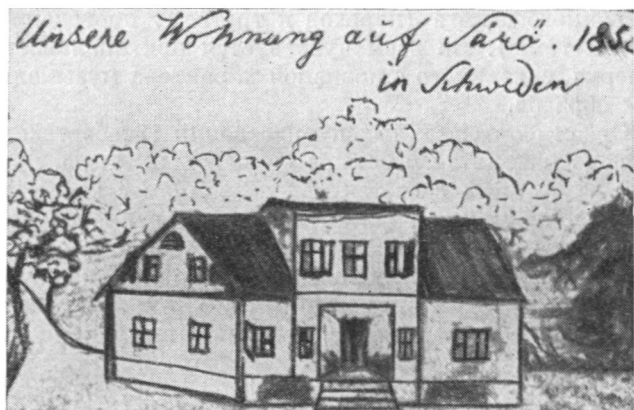 Unsere Wohnung auf Särö.
in Schweden